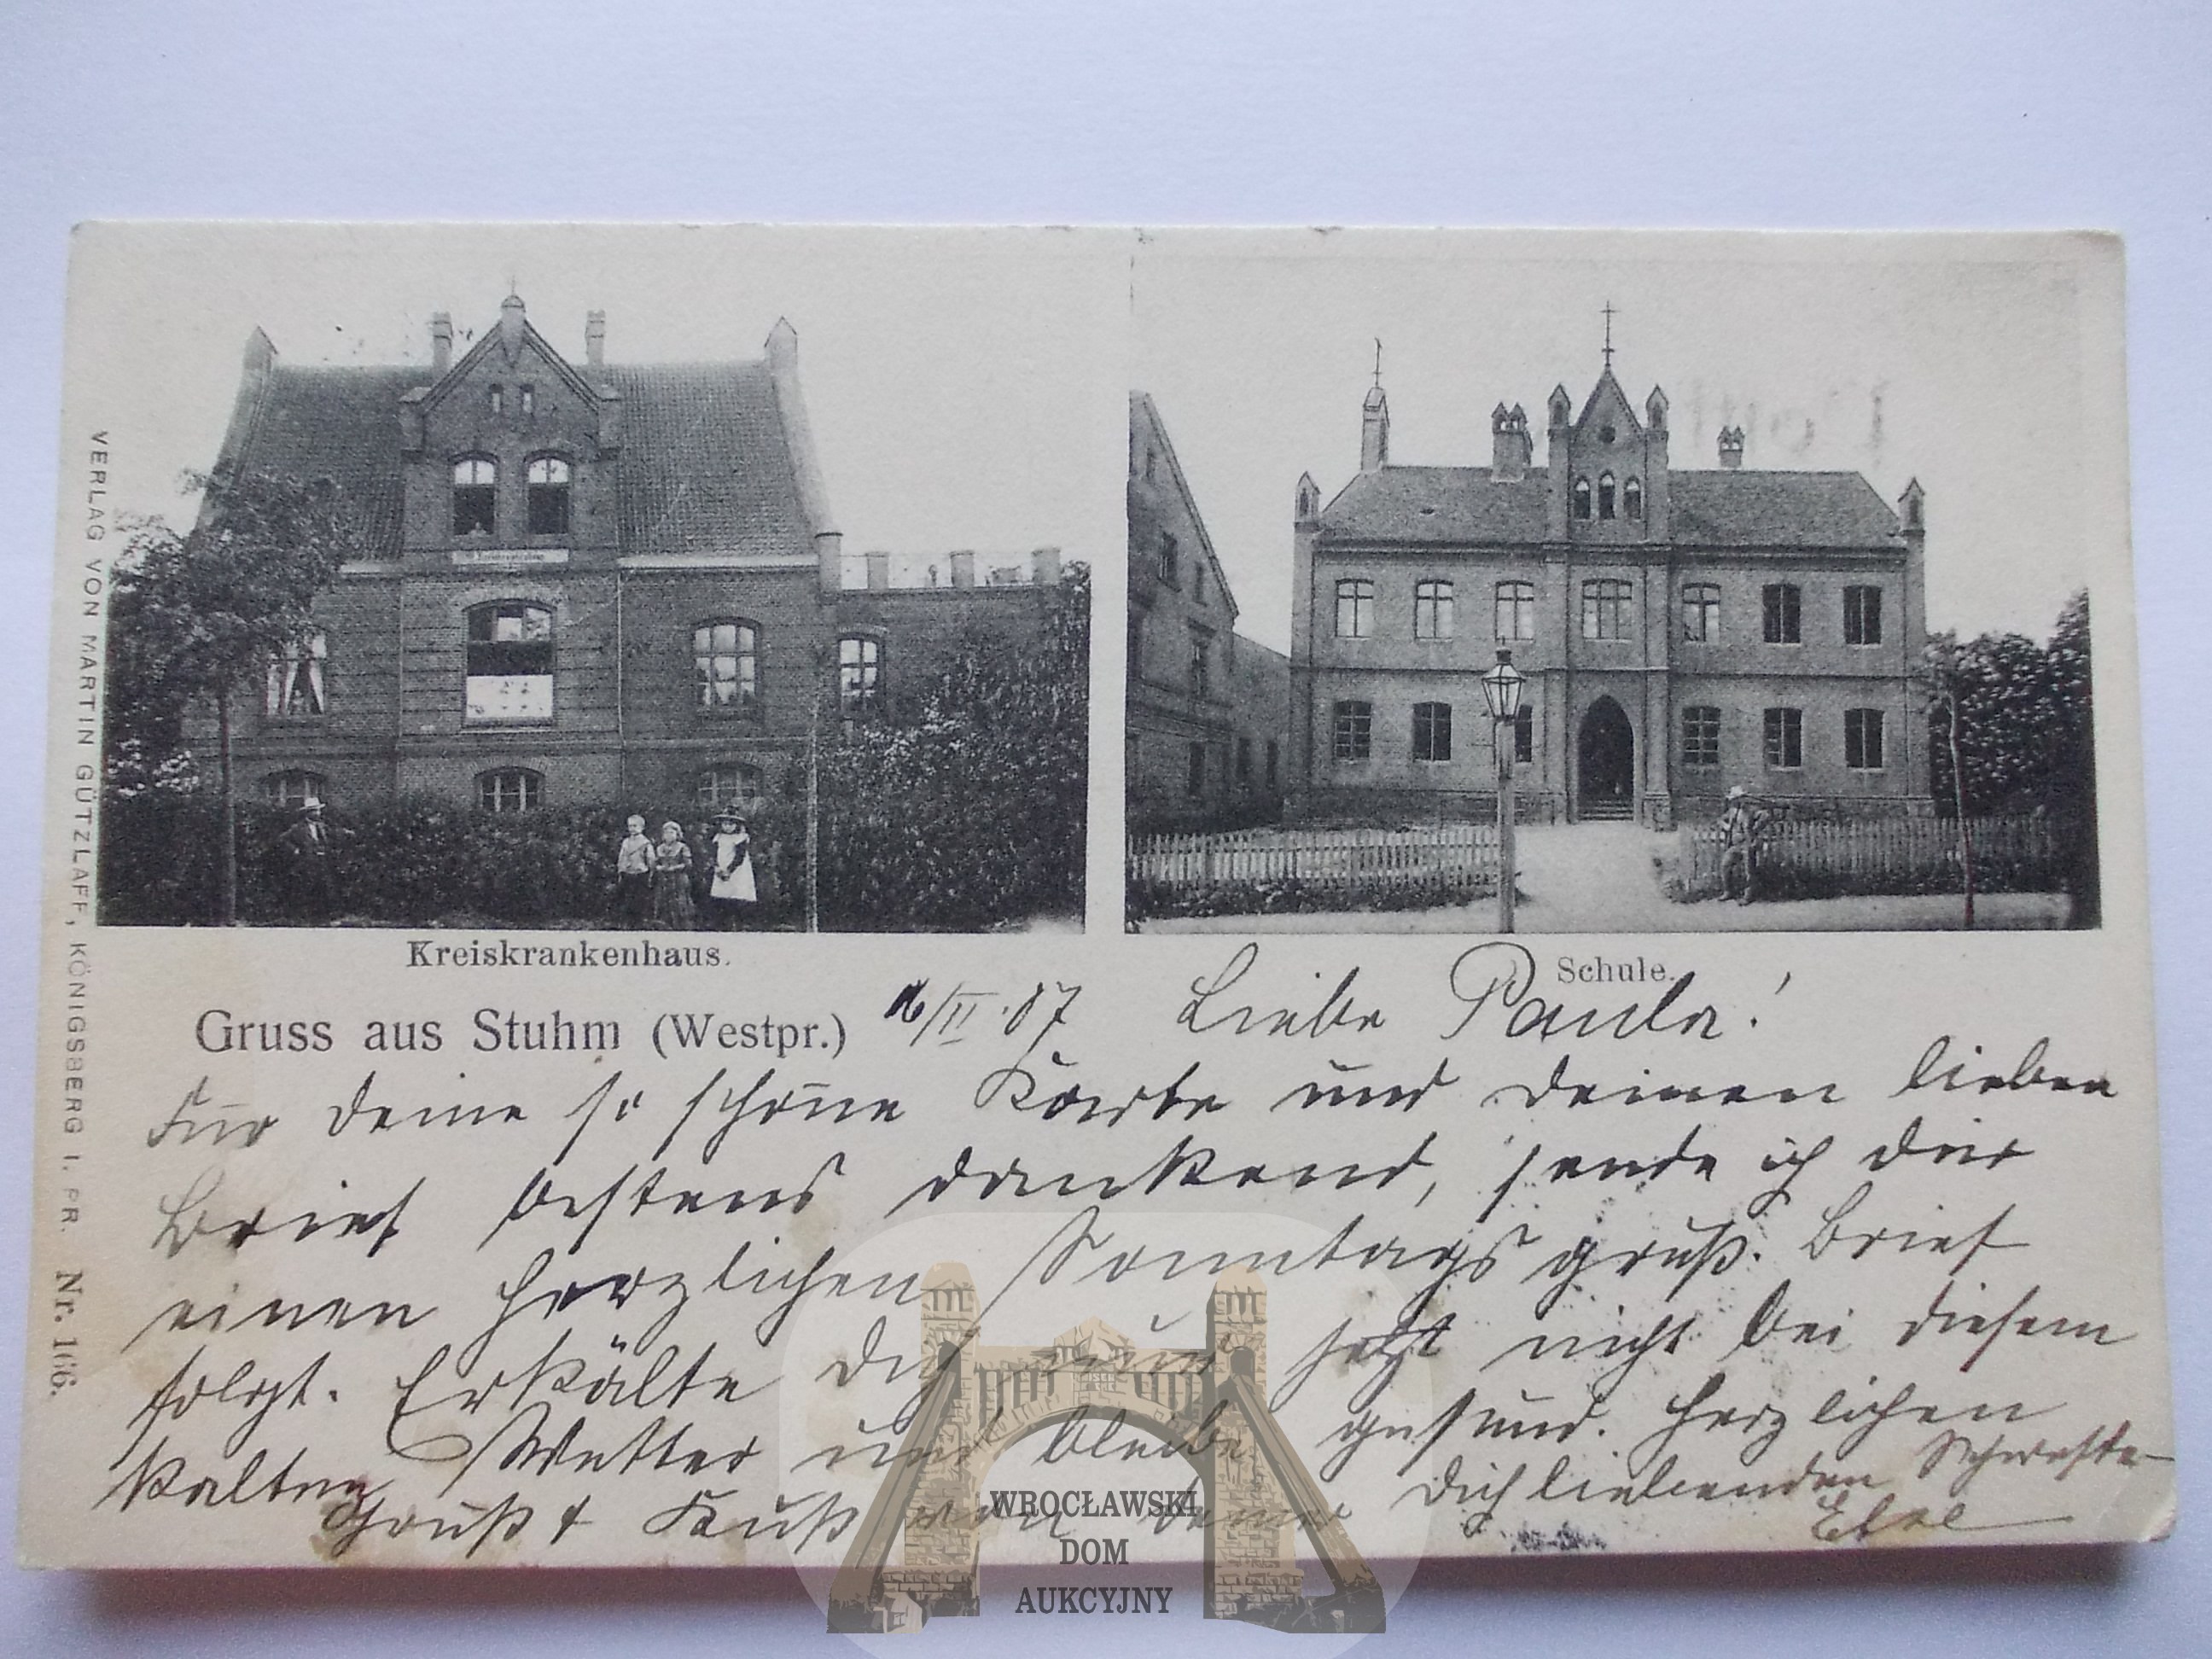 VERLAG VON MARTIN GÜTZLAFF, KÖNIGSBERG I. PR. Nr. 166.
Kreiskrankenhaus.
Schule.
Gruss aus Stuhm (Westpr.)
/II.07 Liebe Paula!
Für Deine so schöne Karte und Deinen lieben
Brief bestens dankend, sende ich Dir
einen herzlichen Sonntagsgruß. Brief
folgt. Erkälte Dich nur jetzt nicht bei diesem
kalten Wetter und bleibe gesund. Herzlichen
Gruß & Kuß von Deiner Dich liebenden Schwester
WROCŁAWSKI
DOM
AUKCYJNY